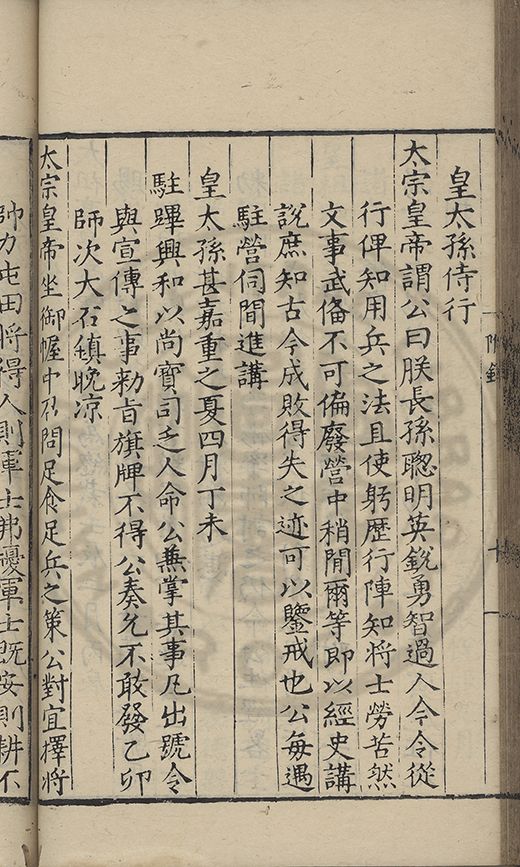 皇太孫侍行
太宗皇帝謂公曰朕長孫聦明英銳勇智過人今令從
行俾知用兵之法且使躬歷行陣知将士勞苦然
文事武俻不可偏廢營中稍閒爾等即以經史講
說庶知古今成敗得失之迹可以鑒戒也公每遇
駐營伺間進講
皇太孫甚嘉重之夏四月丁未
駐蹕興和以尚寶司乏人命公兼掌其事凡出號令
與宣傳之事勑旨旗牌不得公奏允不敢發乙卯
師次大石鎮晚凉
太宗皇帝坐御幄中召問足食足兵之策公對宜擇将
帥力屯田将得人則軍士弗擾軍士既安則耕不
附錄
十